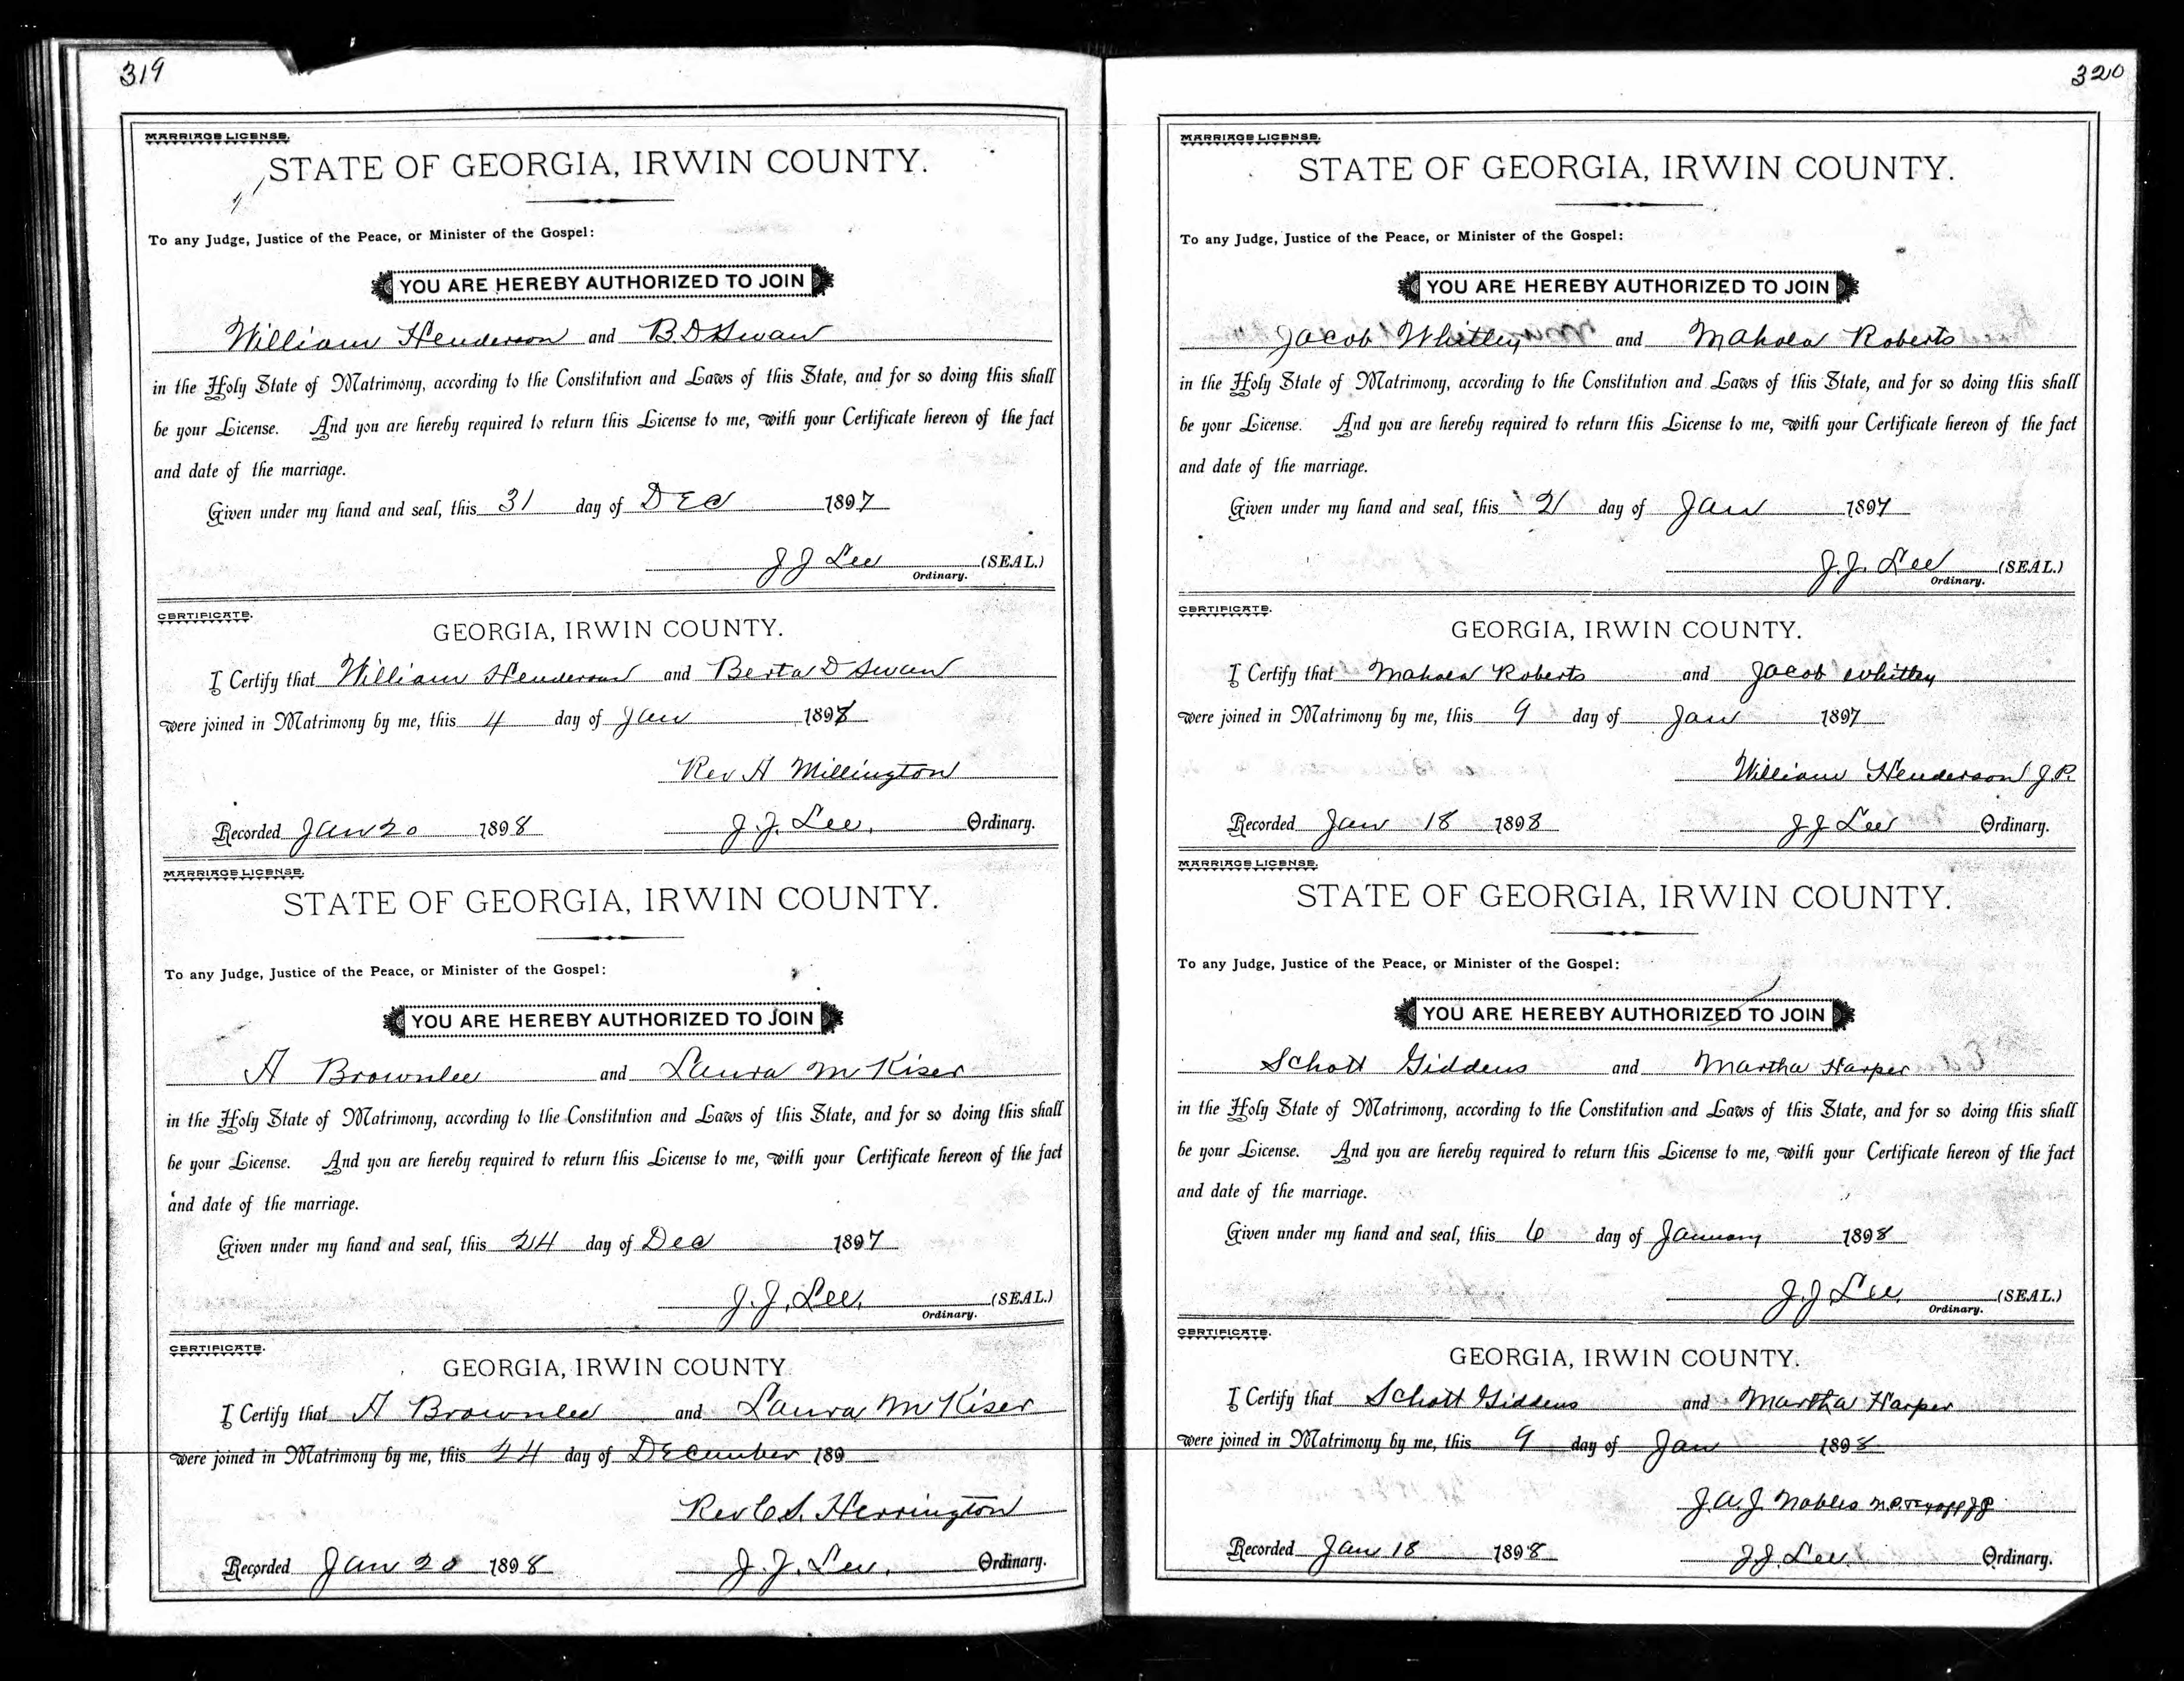 319
MARRIAGE LICENSE.
STATE OF GEORGIA, IRWIN COUNTY.
To any Judge, Justice of the Peace, or Minister of the Gospel:
YOU ARE HEREBY AUTHORIZED TO JOIN
William Henderson and B. D Swan
in the Holy State of Matrimony, according to the Constitution and Laws of this State, and for so doing this shall
be your License. And you are hereby required to return this License to me, with your Certificate hereon of the fact
and date of the marriage.
Given under my hand and seal, this 31 day of Dec 1897
J J Lee (SEAL.)
Ordinary.
CERTIFICATE.
GEORGIA, IRWIN COUNTY.
I Certify that William Henderson and Berta D Swan
were joined in Matrimony by me, this 4 day of Jan 1898
Rev A Millington
Recorded Jan 20 1898 J. J. Lee. Ordinary.
MARRIAGE LICENSE.
STATE OF GEORGIA, IRWIN COUNTY.
To any Judge, Justice of the Peace, or Minister of the Gospel:
YOU ARE HEREBY AUTHORIZED TO JOIN
A Brownlee and Laura M Kiser
in the Holy State of Matrimony, according to the Constitution and Laws of this State, and for so doing this shall
be your License. And you are hereby required to return this License to me, with your Certificate hereon of the fact
and date of the marriage.
Given under my hand and seal, this 24 day of Dec 1897
J. J. Lee. (SEAL.)
Ordinary.
CERTIFICATE.
GEORGIA, IRWIN COUNTY.
I Certify that A Brownlee and Laura M Kiser
were joined in Matrimony by me, this 24 day of December 189
Rev C S. Herrington
Recorded Jan 20 1898 J. J. Lee. Ordinary.
320
MARRIAGE LICENSE.
STATE OF GEORGIA, IRWIN COUNTY.
To any Judge, Justice of the Peace, or Minister of the Gospel:
YOU ARE HEREBY AUTHORIZED TO JOIN
Jacob Whitley and Mahola Roberts
in the Holy State of Matrimony, according to the Constitution and Laws of this State, and for so doing this shall
be your License. And you are hereby required to return this License to me, with your Certificate hereon of the fact
and date of the marriage.
Given under my hand and seal, this 21 day of Jan 1897
J. J. Lee (SEAL.)
Ordinary.
CERTIFICATE.
GEORGIA, IRWIN COUNTY.
I Certify that Mahola Roberts and Jacob Whitley
were joined in Matrimony by me, this 9 day of Jan 1897
William Henderson J. P.
Recorded Jan 18 1898 J J Lee Ordinary.
MARRIAGE LICENSE.
STATE OF GEORGIA, IRWIN COUNTY.
To any Judge, Justice of the Peace, or Minister of the Gospel:
YOU ARE HEREBY AUTHORIZED TO JOIN
Schott Giddens and Martha Harper
in the Holy State of Matrimony, according to the Constitution and Laws of this State, and for so doing this shall
be your License. And you are hereby required to return this License to me, with your Certificate hereon of the fact
and date of the marriage.
Given under my hand and seal, this 6 day of January 1898
J. J Lee. (SEAL.)
Ordinary.
CERTIFICATE.
GEORGIA, IRWIN COUNTY.
I Certify that Schott Giddens and Martha Harper
were joined in Matrimony by me, this 9 day of Jan 1898
J. A. J. Nobles
Recorded Jan 18 1898 J J. Lee. Ordinary.